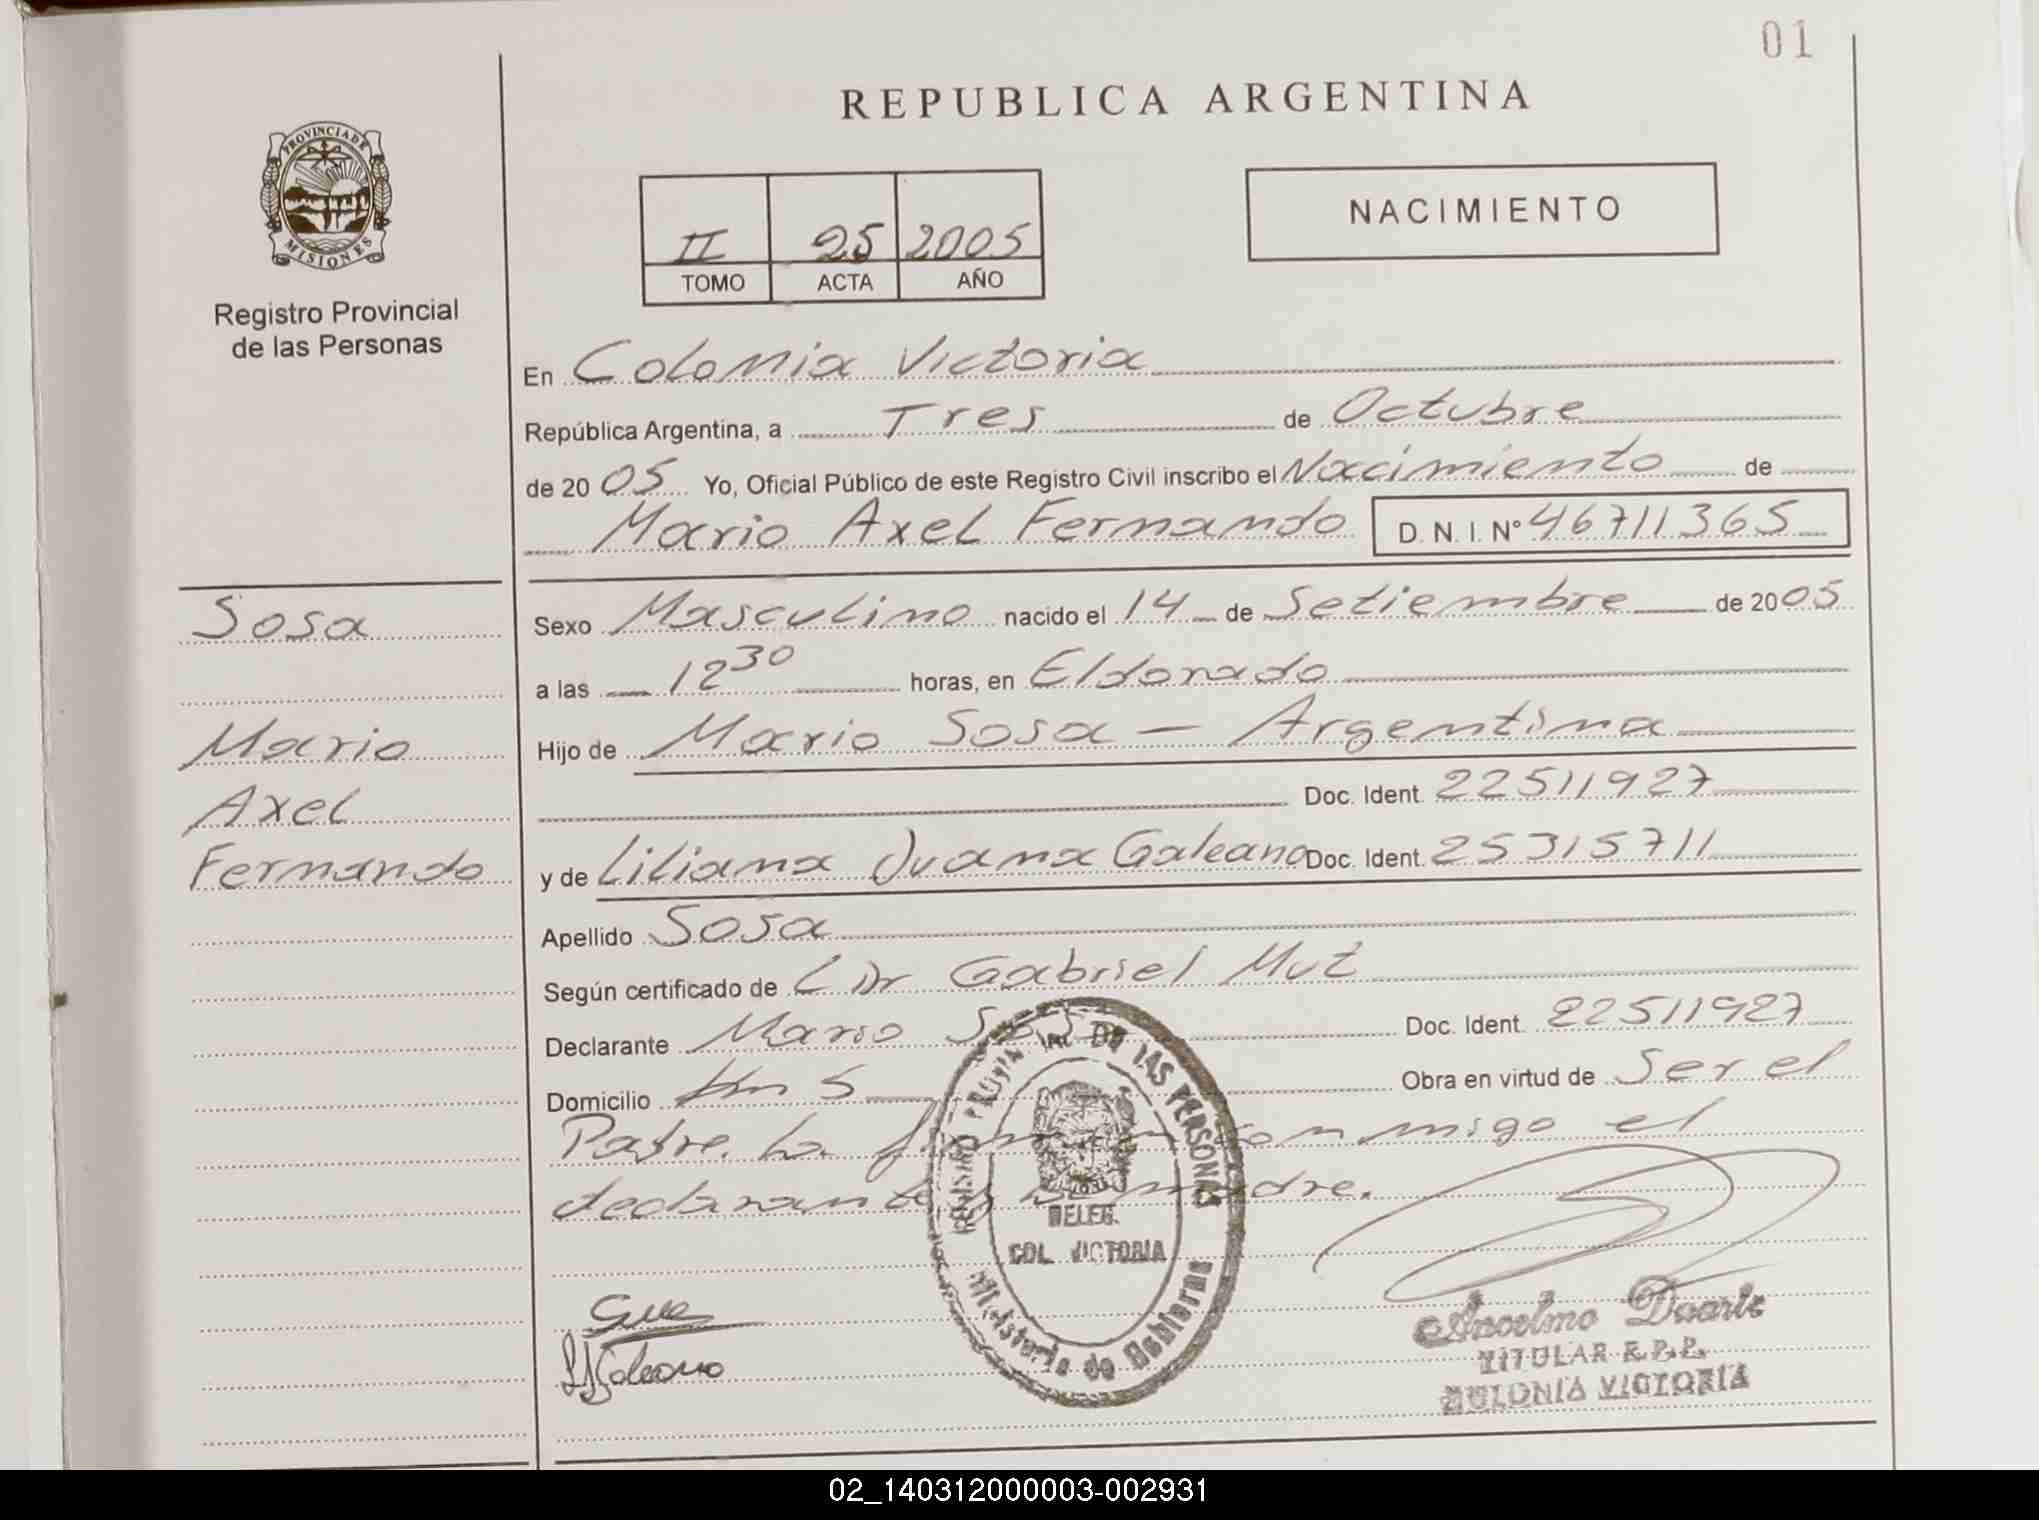 01
REPUBLICA ARGENTINA
PROVINCIA DE
MISIONES
Registro Provincial
de las Personas
II 25 2005
TOMO ACTA AÑO
NACIMIENTO
En Colonia Victoria
República Argentina, a Tres de Octubre
de 20 05 Yo, Oficial Público de este Registro Civil inscribo el Nacimiento de
Mario Axel Fernando D.N.I. Nº 46711365
Sosa
Mario
Axel
Fernando
Sexo Masculino nacido el 14 de Setiembre de 20 05
a las 12 30 horas, en Eldorado
Hijo de Mario Sosa - Argentina
Doc. Ident. 22511927
y de Liliana Juana Galeano Doc. Ident. 25315711
Apellido Sosa
Según certificado de Dr Gabriel Mut
Declarante Mario Sosa Doc. Ident. 22511927
Domicilio Km 5 Obra en virtud de Ser el
Padre. La firman conmigo el
declarante y la madre.
REGISTRO PROVINCIAL DE LAS PERSONAS
DELEG.
COL. VICTORIA
Ministerio de Gobierno
Galeano
Anselmo Duarte
TITULAR R.P.P.
COLONIA VICTORIA
02_140312000003-002931